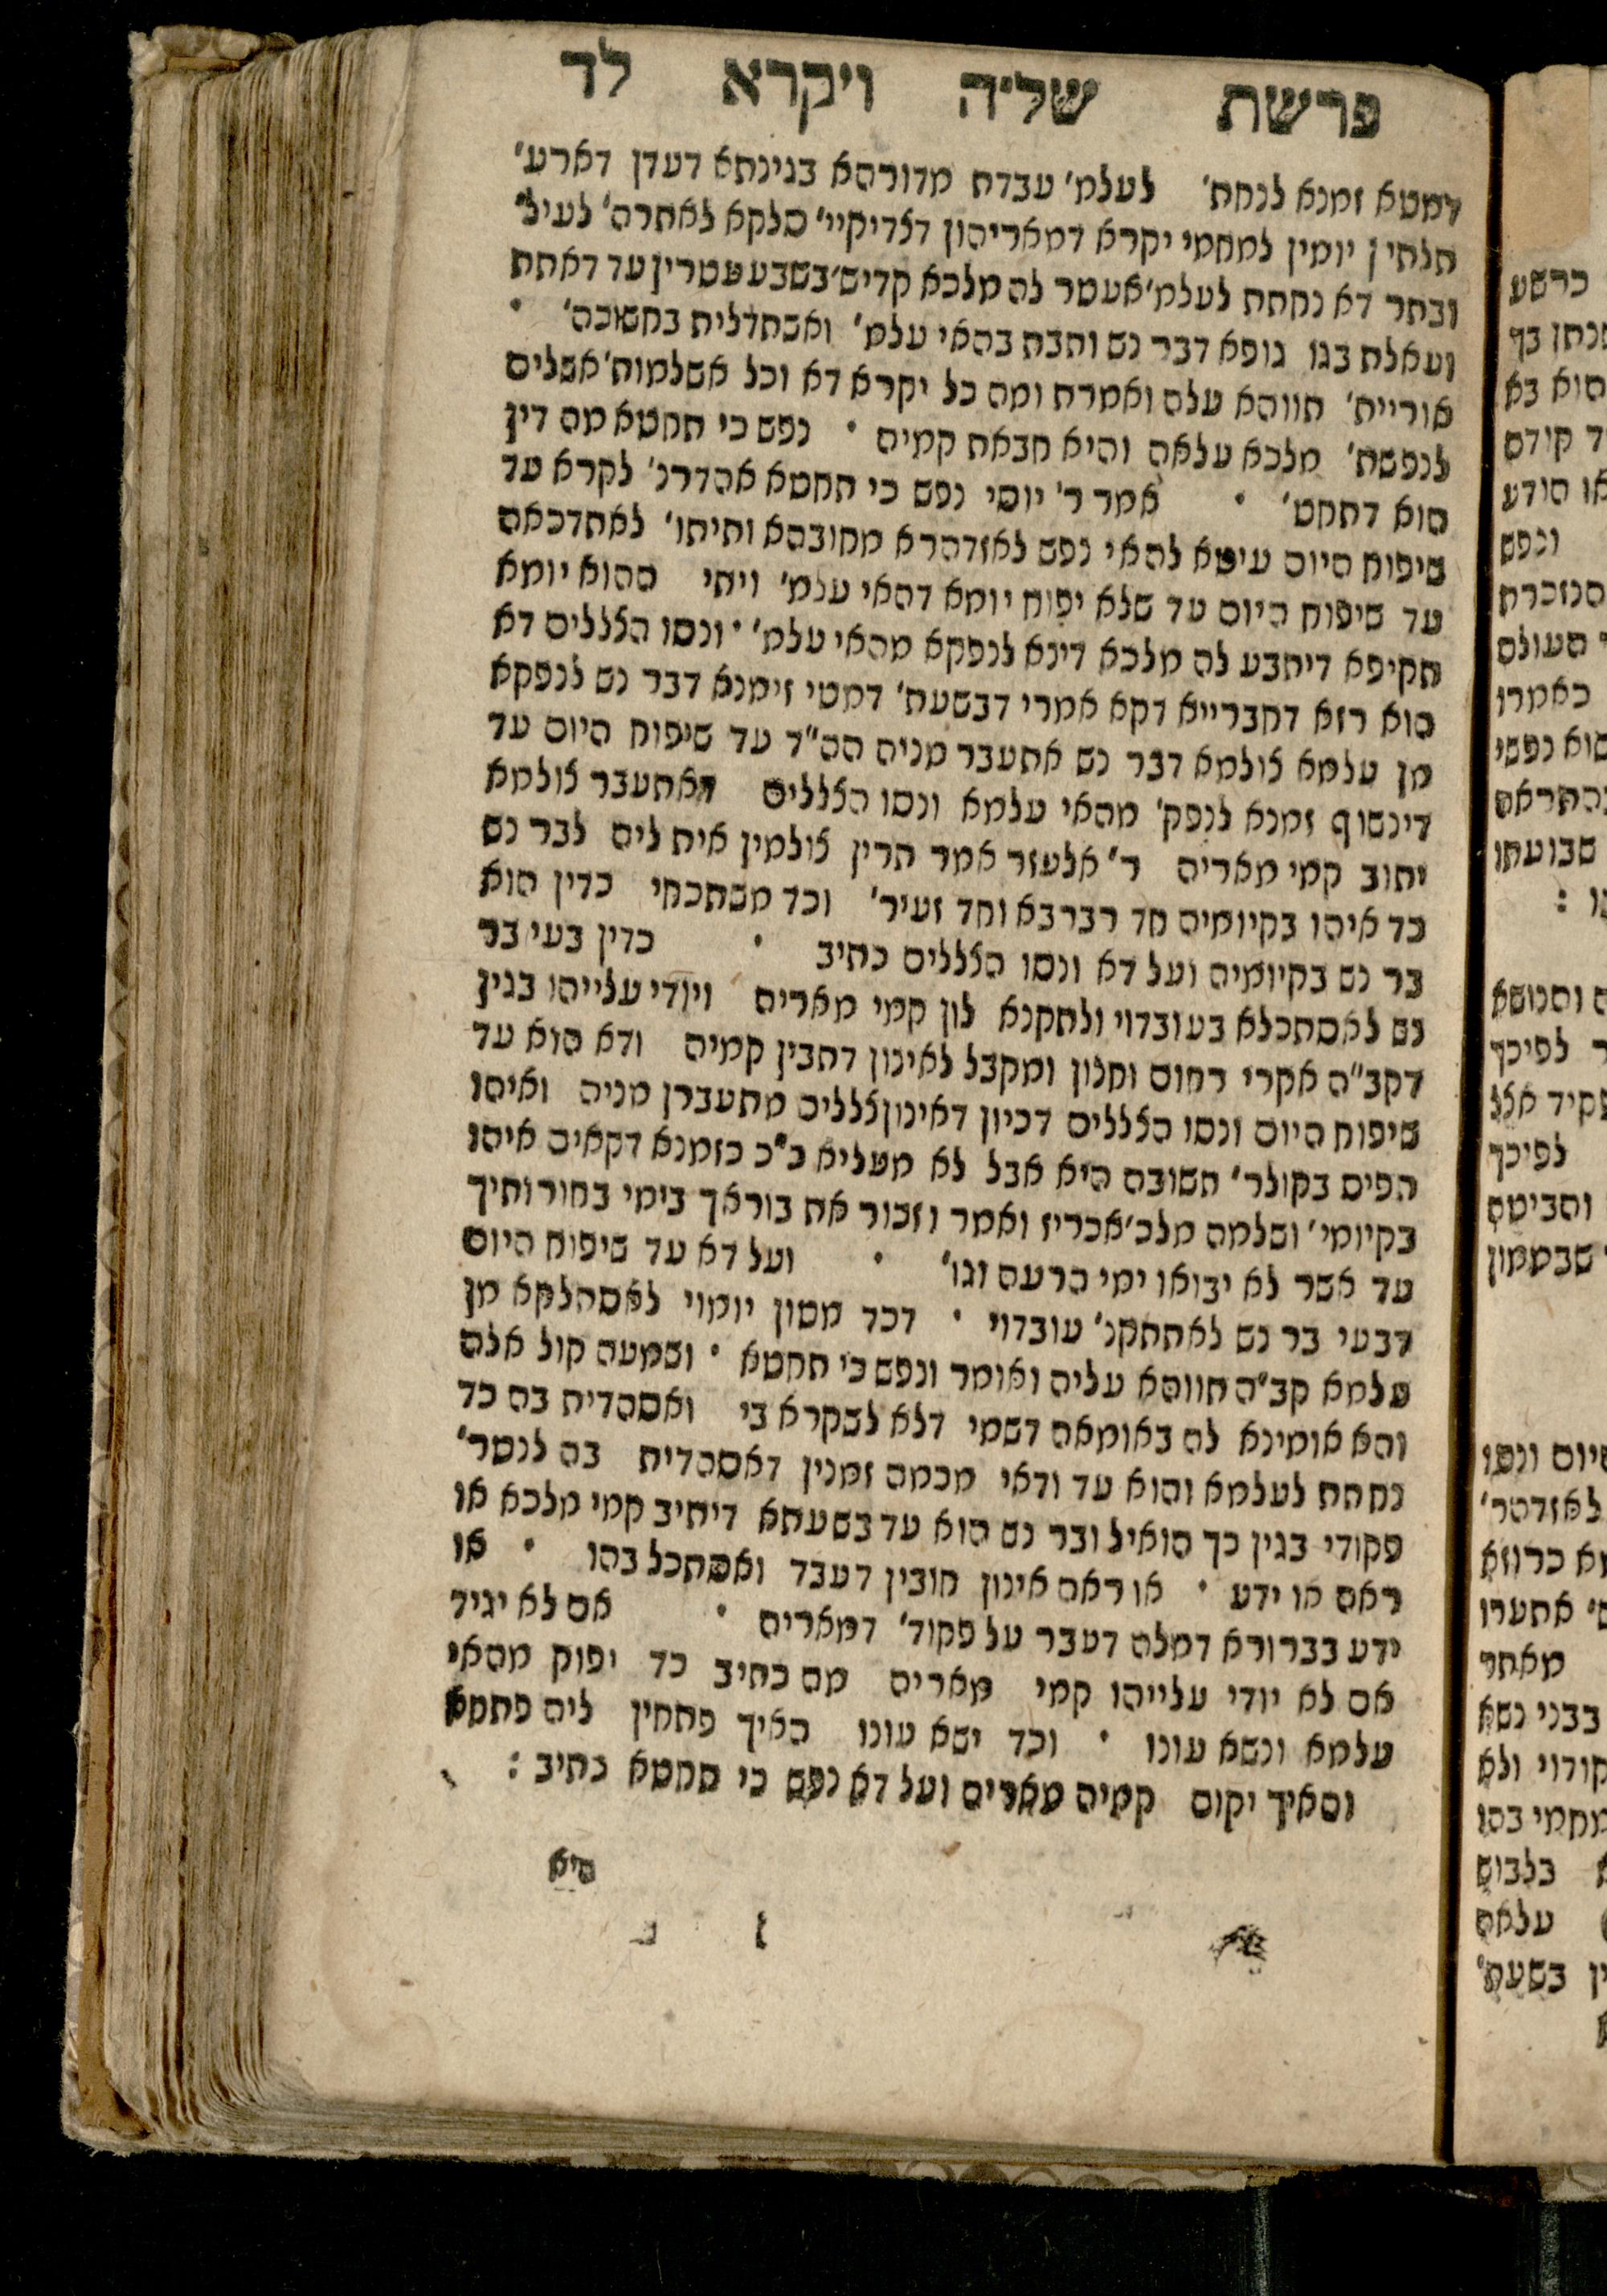 פרשת שליה ויקרא לד
דמטא זמנא לנחת׳ לעלמ׳ עבדת מדורהא בגינתא דעדן דארע׳
תלתין יומין למחמי יקרא דמאריהון דצדיקיי׳ סלקא לאתרה׳ לעיל׳
ובתר דא נחתת לעלמ׳ אעטר לה מלכא קדיש׳ בשבע עטרין עד דאתת
ועאלת בגו גופא דבר נש וחבת בהאי עלמ׳ ואשתדלית בחשוכה׳ •
אוריית׳ תווהא עלה ואמרת ומה כל יקרא דא וכל אשלמות׳ אשלים
לנפשת׳ מלכא עלאה והיא חבאת קמיה • נפש כי תחטא מה דין
הוא דתחט׳ • אמר ר׳ יוסי נפש כי תחטא אהדרנ׳ לקרא עד
שיפוח היום עיטא להאי נפש לאזדהרא מחובהא ותיתו׳ לאתדכאה
עד שיפוח היום עד שלא יפוח יומא דהאי עלמ׳ ויתי ההוא יומא
תקיפא דיתבע לה מלכא דינא לנפקא מהאי עלמ׳ • ונסו הצללים דא
הוא רזא דחברייא דקא אמרי דבשעת׳ דמטי זימנא דבר נש לנפקא
מן עלמא צולמא דבר נש אתעבר מניה הה״ד עד שיפוח היום עד
דינשוף זמנא לנפק׳ מהאי עלמא ונסו הצללים דאתעבר צולמא
יתוב קמי מאריה ר׳ אלעזר אמר תרין צולמין אית ליה לבר נש
כד איהו בקיומיה חד רברבא וחד זעיר׳ וכד משתכחי כדין הוא
בר נש בקיומיה ועל דא ונסו הצללים כתיב • כדין בעי בר
נש לאסתכלא בעובדוי ולתקנא לון קמי מאריה ויודי עלייהו בגין
דקב״ה אקרי רחום וחנון ומקבל לאינון דתבין קמיה ודא הוא עד
שיפוח היום ונסו הצללים דכיון דאינון צללים מתעברן מניה ואיהו
תפיס בקולר׳ תשובה היא אבל לא מעליא כ״כ כזמנא דקאים איהו
בקיומי׳ ושלמה מלכ׳ אכריז ואמר וזכור את בוראך בימי בחורותיך
עד אשר לא יבואו ימי הרעה וגו׳ • ועל דא עד שיפוח היום
דבעי בר נש לאתתקנ׳ עובדוי • דכד מטון יומוי לאסתלקא מן
עלמא קב״ה תווהא עליה ואומר ונפש כי תחטא • ושמעה קול אלה
והא אומינא לה באומאה דשמי דלא לשקרא בי ואסהדית בה כד
נחתת לעלמא והוא עד ודאי מכמה זמנין דאסהדית בה לנטר׳
פקודי בגין כך הואיל ובר נש הוא עד בשעתא דיתיב קמי מלכא או
ראה או ידע • או ראה אינון חובין דעבד ואסתכל בהו • או
ידע בברורא דמלה דעבר על פקוד׳ דמאריה • אם לא יגיד
אם לא יודי עלייהו קמי מאריה מה כתיב כד יפוק מהאי
עלמא ונשא עונו • וכד ישא עונו האיך פתחין ליה פתחא
והאיך יקום קמיה מאריה ועל דא נפש כי תחטא כתיב :
היא
כרשע
הוא בא
קודם
או הודע
ונפש
הנזכרת
העולם
כאמרו
הוא נפשי
שבועתו
והנושא
לפיכך
לפיכך
והביטה
שבממון
היום ונסו
לאזדהר׳
כרוזא
אתערו
מאחר
בבני נשא
ולא
בהו
בלבוש
עלאה
בשעת׳